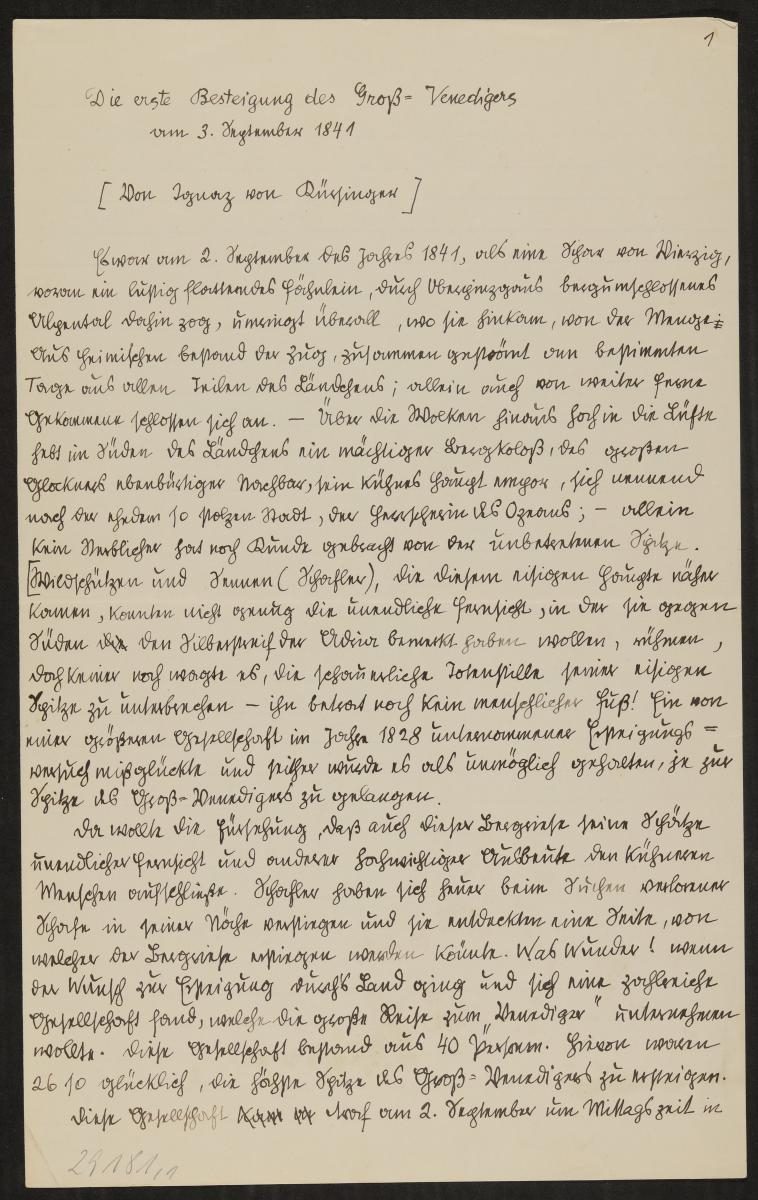 1
Die erste Besteigung des Groß= Venedigers
am 3. September 1841
[ Von Ignaz von Kürsinger ]
Es war am 2. September des Jahres 1841, als eine Schar von Vierzig,
voran ein lustig flatterndes Fähnlein, durch Oberpinzgaus bergumschlossenes
Alpental dahin zog, umringt überall, wo sie hinkam, von der Menge.
Aus Heimischen bestand der Zug, zusammen geströmt am bestimmten
Tage aus allen Teilen des Ländchens; allein auch von weiter Ferne
Gekommene schlossen sich an. — Über die Wolken hinaus hoch in die Lüfte
hebt im Süden des Ländchens ein mächtiger Bergkoloß, des großen
Glockners ebenbürtiger Nachbar, sein kühnes Haupt empor, sich nennend
nach der ehedem so stolzen Stadt, der Herrscherin des Ozeans; — allein
kein Sterblicher hat noch Kunde gebracht von der unbetretenen Spitze.
[Wildschützen und Sennen ( Schafler), die diesem eisigen Haupte näher
kamen, konnten nicht genug die unendliche Fernsicht, in der sie gegen
Süden die den Silberstreif der Adria bemerkt haben wollen, rühmen,
doch keiner noch wagte es, die schauerliche Totenstille seiner eisigen
Spitze zu unterbrechen — ihn betrat noch kein menschlicher Fuß! Ein von
einer größeren Gesellschaft im Jahre 1828 unternommener Ersteigungs=
versuch mißglückte und seither wurde es als unmöglich gehalten, je zur
Spitze des Groß=Venedigers zu gelangen.
Da wollte die Fürsehung, daß auch dieser Bergriese seine Schätze
unendlicher Fernsicht und anderer hochwichtiger Ausbeute den kühneren
Menschen aufschließe. Schafler haben sich heuer beim Suchen verlorener
Schafe in seiner Nähe verstiegen und sie entdeckten eine Seite, von
welcher der Bergriese erstiegen werden könnte. Was Wunder! wenn
der Wunsch zur Ersteigung durchs Land ging und sich eine zahlreiche
Gesellschaft fand, welche die große Reise zum „Venediger" unternehmen
wollte. Diese Gesellschaft bestand aus 40 Personen. Hievon waren
26 so glücklich, die höchste Spitze des Groß=Venedigers zu ersteigen.
Diese Gesellschaft kam traf am 2. September um Mittagszeit in
29181,1